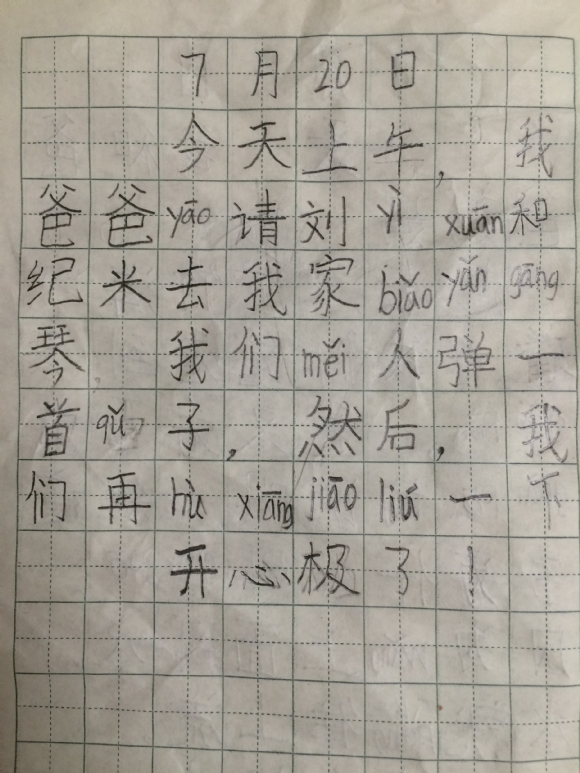 7月20日
今天上午,我
爸爸yāo请刘yì xuān和
纪米去我家biǎo yǎn gāng
琴.我们měi人弹一
首qǔ子,然后,我
们再hù xiāng jiāo liú一下
开心极了!